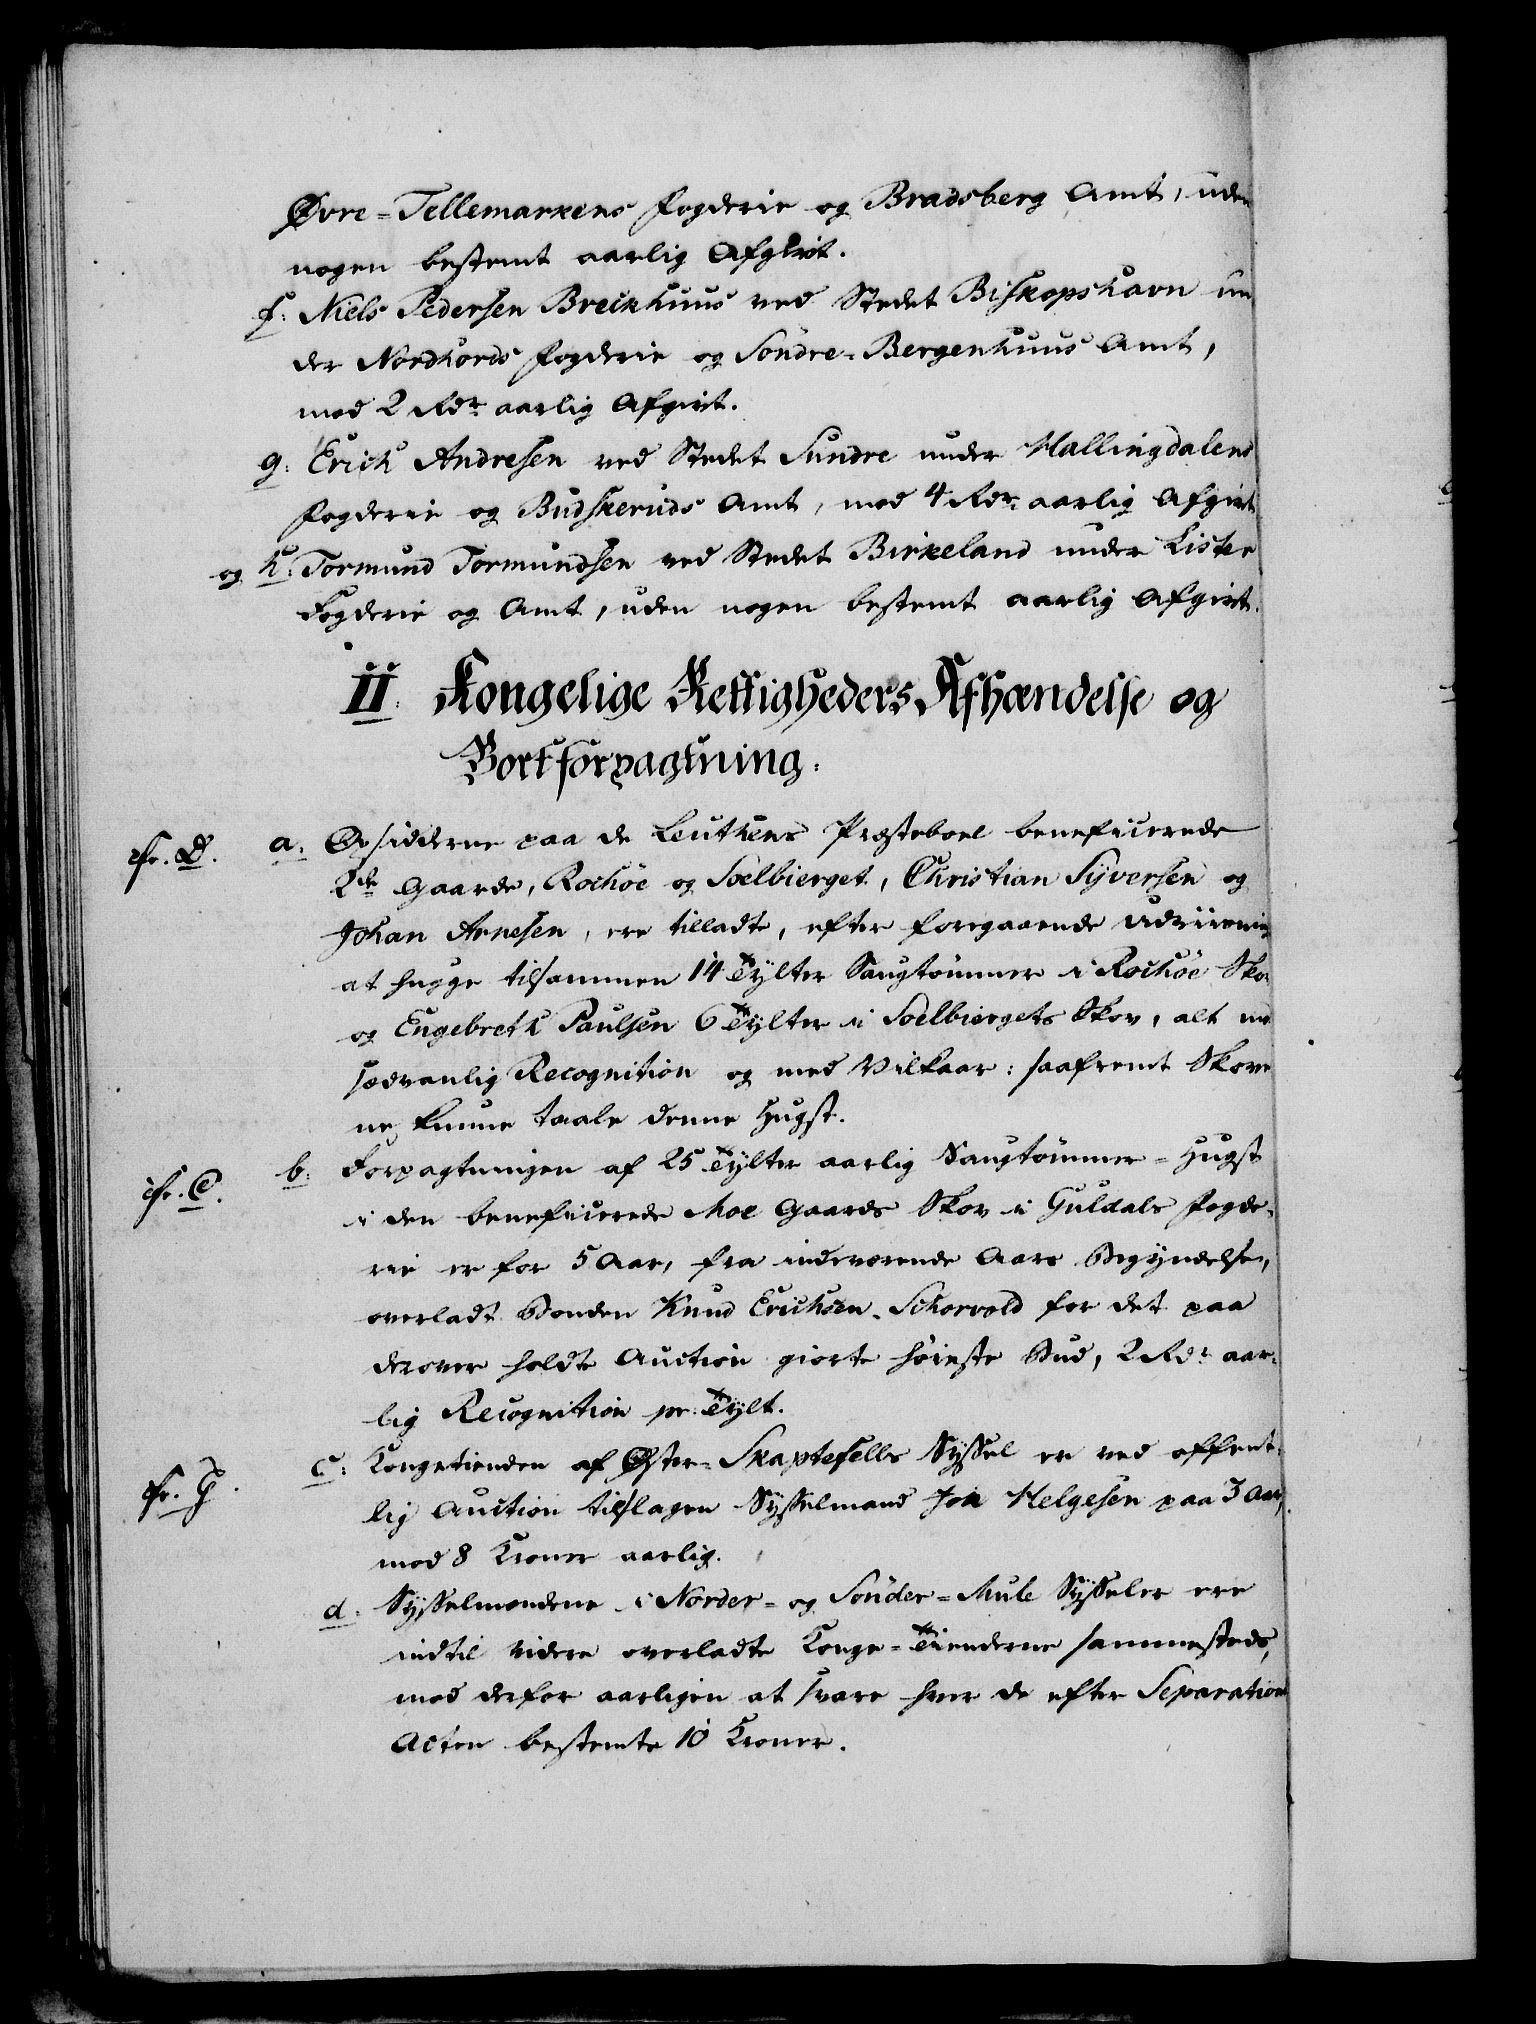 Øvre-Tellemarkens Fogderie og Bradsberg Amt, uden
nogen bestemt aarlig Afgivt.
f: Niels Pedersen Breikhuus ved Stedet Biskopshavn un
der Nordhords Fogderie og Søndre-Bergenhuus Amt,
mod 2 Rdr aarlig Afgivt.
g: Erich Andresen ved Stedet Sundre under Hallingdalens
Fogderie og Budskeruds Amt, mod 4 Rdr aarlig Afgivt
og h: Tormund Tormundsen ved Stedet Birkeland under Lister
Fogderie og Amt, uden nogen bestemt aarlig Afgivt.
II. Kongelige Rettigheders Afhændelse og
Bortforpagtning.
cfr. D. a. Opsidderne paa de Leuthens Præsteboel beneficerede
2de Gaarde, Rochøe og Soelbierget, Christian Syversen og
Johan Arnesen, ere tilladte, efter foregaaende Udviisning
at hugge tilsammen 14 Tylter Saugtømmer i Rochøe Sko
og Engebreth Paulsen 6 Tylter i Soelbiergets Skov, alt mod
sædvanlig Recognition og med Vilkaar: saafremt Skove
ne kunne taale denne Hugst.
cfr. C. b. Forpagtningen af 25 Tylter aarlig Saugtømmer-Hugst
i den beneficerede Moe Gaards Skov i Guldals Fogde-
rie er for 5 Aar, fra indeværende Aars Begyndelse,
overladt Bonden Knud Erichsen Schorvold for det paa
derover holdte Auction giorte høieste Bud, 2 Rdr aar-
lig Recognition pr. Tylt.
cfr. G. c: Kongetienden af Øster-Skaptefells Syssel er ved offent-
lig Auction tilslagen Sysselmand Jon Helgesen paa 3 Aar,
mod 8 Kroner aarlig.
d. Sysselmændene i Norder- og Sønder-Mule Sysseler ere
indtil videre overladte Konge-Tienderne sammesteds,
mod derfor aarligen at svare hver de efter Separations
Acten bestemte 10 Kroner.